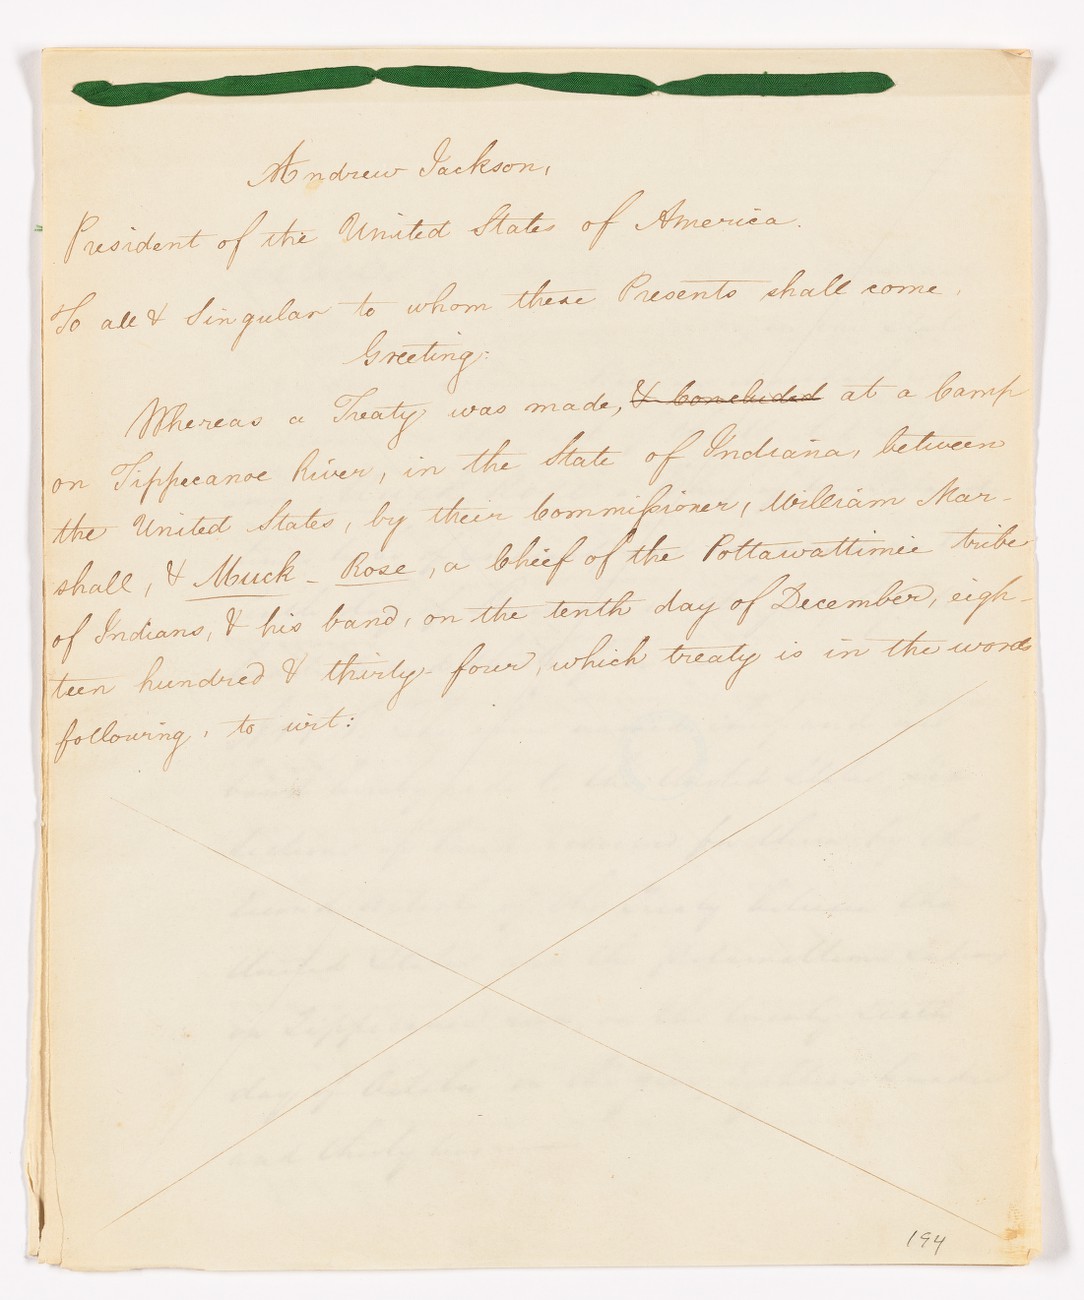 Andrew Jackson,
President of the United States of America.
To all & Singular to whom these Presents shall come,
Greeting:
Whereas a Treaty was made, & Concluded at a Camp
on Tippecanoe River, in the State of Indiana, between
the United States, by their Commissioner, William Mar-
shall, & Muck-Rose, a Chief of the Pottawattimie tribe
of Indians, & his band, on the tenth day of December, eigh-
teen hundred & thirty-four, which treaty is in the words
following, to wit:
194